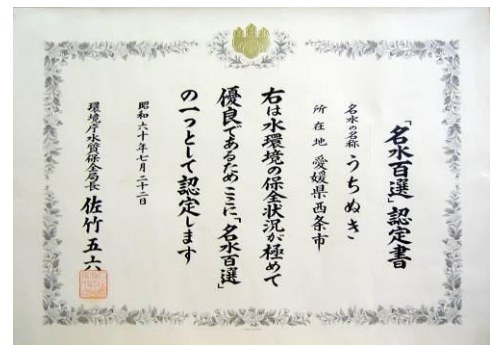 「名水百選」認定書
名水の名称 うちぬき
所在地 愛媛県西条市
右は水環境の保全状況が極めて
優良であるためここに、「名水百選」
の一つとして認定します
昭和六十年七月二十二日
環境庁水質保全局長 佐竹五六